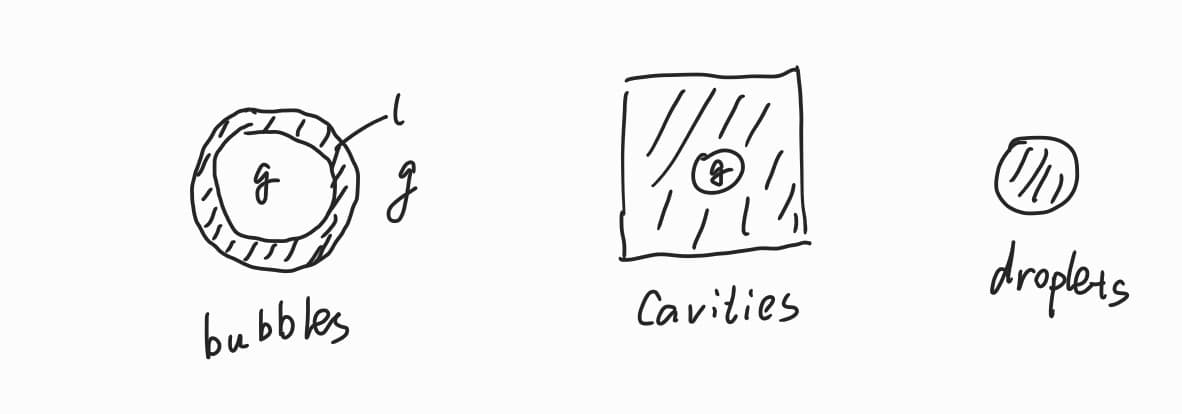 l
g
g
g
bubbles
Cavities
droplets